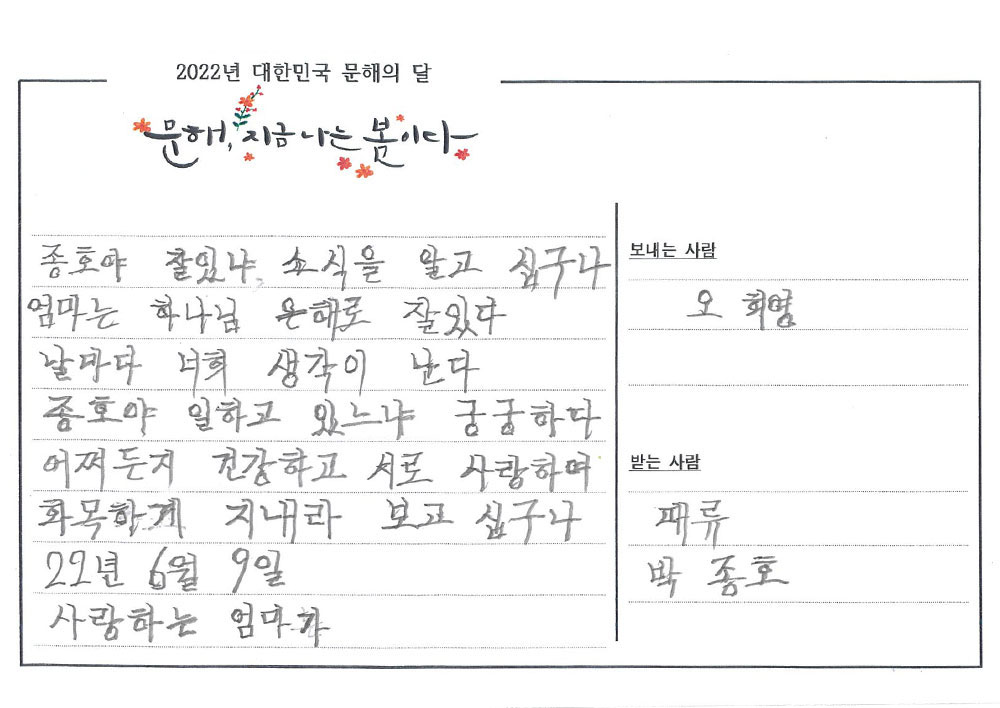 2022년 대한민국 문해의 달
문해, 지금 나는 봄이다
종호야 잘있냐, 소식을 알고 십구나
엄마는 하나님 은헤로 잘있다
날마다 너희 생각이 난다
종호야 일하고 있느냐 궁궁하다
어쩌든지 건강하고 서로 사랑하며
화목하게 지내라 보고 십구나
22년 6월 9일
사랑하는 엄마가
보내는 사람
오 희영
받는 사람
패류
박 종호